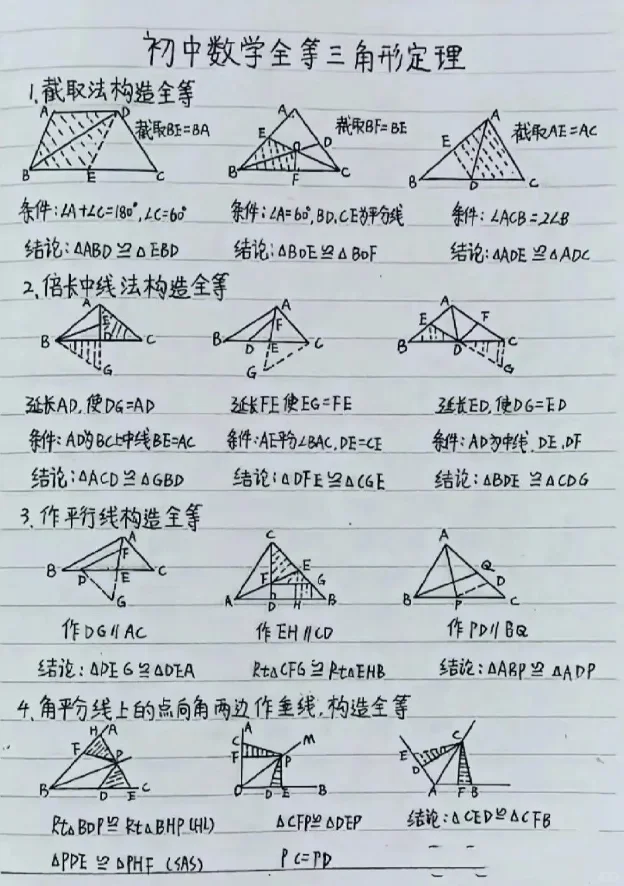 初中数学全等三角形定理
1.截取法构造全等
A D B E C 截取BE=BA
A E D O B F C 截取BF=BE
A E B D C 截取AE=AC
条件:∠A+∠C=180°,∠C=60° 条件:∠A=60°,BD,CE为平分线 条件:∠ACB=2∠B
结论:△ABD≌△EBD 结论:△BOE≌△BOF 结论:△ADE≌△ADC
2.倍长中线法构造全等
A E B D C G
A F B D E C G
A E F B D C G
延长AD,使DG=AD 延长FE使EG=FE 延长ED,使DG=ED
条件:AD为BC上中线BE=AC 条件:AE平分∠BAC,DE=CE 条件:AD为中线,DE,DF
结论:△ACD≌△GBD 结论:△DFE≌△CGE 结论:△BDE≌△CDG
3.作平行线构造全等
A F B D E C G
C E F G A D H B
A Q D B P C
作DG∥AC 作EH∥CD 作PD∥BQ
结论:△DEG≌△DEA Rt△CFG≌Rt△EHB 结论:△ABP≌△ADP
4.角平分线上的点向角两边作垂线,构造全等
H A F P B D E C
A C M F P O D E B
C E D A F B
Rt△BDP≌Rt△BHP(HL) △CFP≌△DEP 结论:△CED≌△CFB
△PDE≌△PHF(SAS) PC=PD